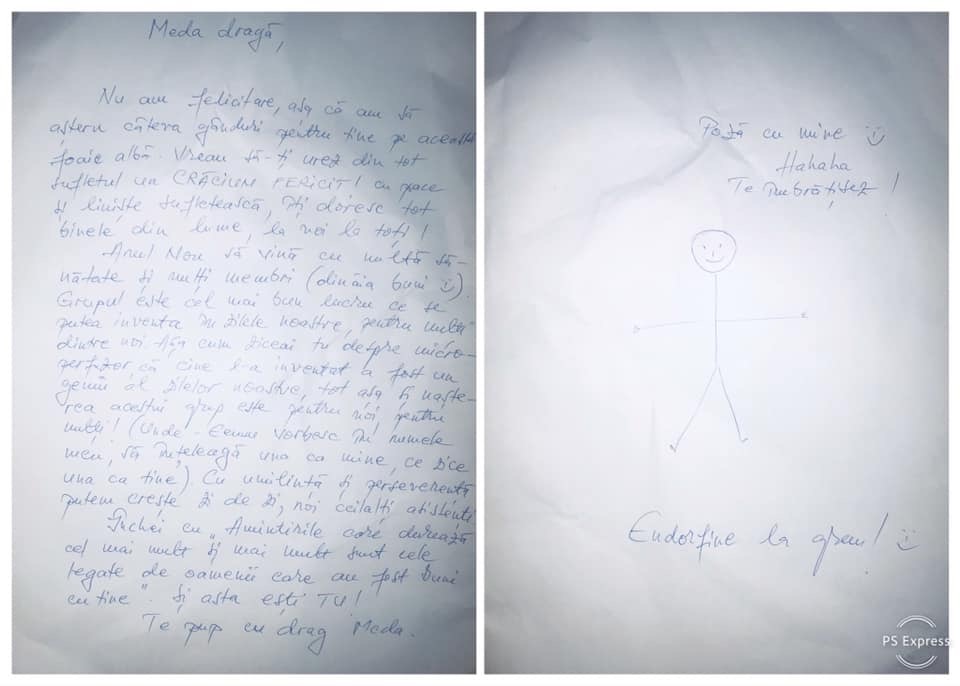 Meda dragă,
Nu am felicitare, așa că am să
aștern câteva gânduri pentru tine pe această
foaie albă. Vreau să-ți urez din tot
sufletul un CRĂCIUN FERICIT! cu pace
și liniște sufletească, îți doresc tot
binele din lume, la noi la toți!
Anul Nou să vină cu multă să-
nătate și mulți membri (dinăia buni :)).
Grupul este cel mai bun lucru ce se
putea inventa în zilele noastre, pentru mulți
dintre noi. Așa cum ziceai tu despre micro-
perfuzor că cine l-a inventat a fost un
geniu al zilelor noastre, tot așa și naște-
rea acestui grup este pentru noi, pentru
mulți! (Unde-
vorbesc în numele
meu, să înțeleagă una ca mine, ce zice
una ca tine). Cu umilință și perseverență
putem crește zi de zi, noi ceilalți
Închei cu „Amintirile care durează
cel mai mult și mai mult sunt cele
legate de oamenii care au fost buni
cu tine". Și asta ești TU!
Te pup cu drag Meda.
Poză cu mine :)
Hahaha
Te îmbrățișez!
Endorfine la greu! :)
PS Express